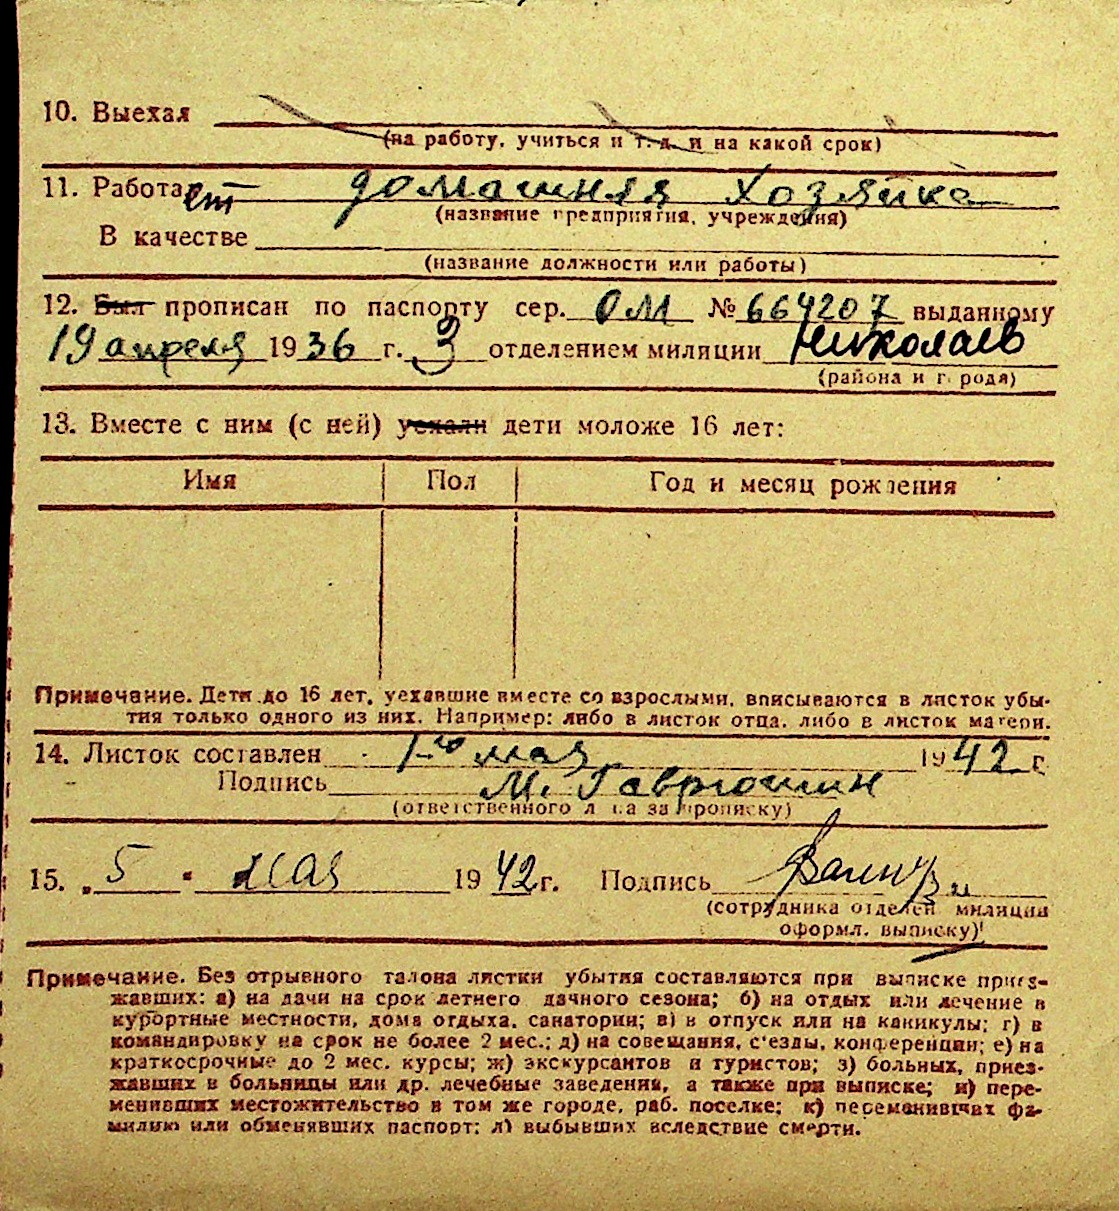 10. Выехал
(на работу, учиться и т. д. и на какой срок)
11. Работает домашняя хозяйка
(название предприятия, учреждения)
В качестве
(название должности или работы)
12. Был прописан по паспорту сер. ОМ № 664207 выданному
19 апреля 1936 г. 3 отделением милиции Николаев
(района и города)
13. Вместе с ним (с ней) уехали дети моложе 16 лет:
Имя Пол Год и месяц рождения
Примечание. Дети до 16 лет, уехавшие вместе со взрослыми, вписываются в листок убы-
тия только одного из них. Например: либо в листок отца, либо в листок матери.
14. Листок составлен 1-го мая 1942 г.
Подпись М. Гаврюшин
(ответственного лица за прописку)
15. „5" мая 1942 г. Подпись
(сотрудника отделен. милиции
оформл. выписку)
Примечание. Без отрывного талона листки убытия составляются при выписке приез-
жавших: а) на дачи на срок летнего дачного сезона; б) на отдых или лечение в
курортные местности, дома отдыха, санатории; в) в отпуск или на каникулы; г) в
командировку на срок не более 2 мес.; д) на совещания, с'езды, конференции; е) на
краткосрочные до 2 мес. курсы; ж) экскурсантов и туристов; з) больных, приез-
жавших в больницы или др. лечебные заведения, а также при выписке; и) пере-
менивших местожительство в том же городе, раб. поселке; к) переменивших фа-
милию или обменявших паспорт; л) выбывших вследствие смерти.